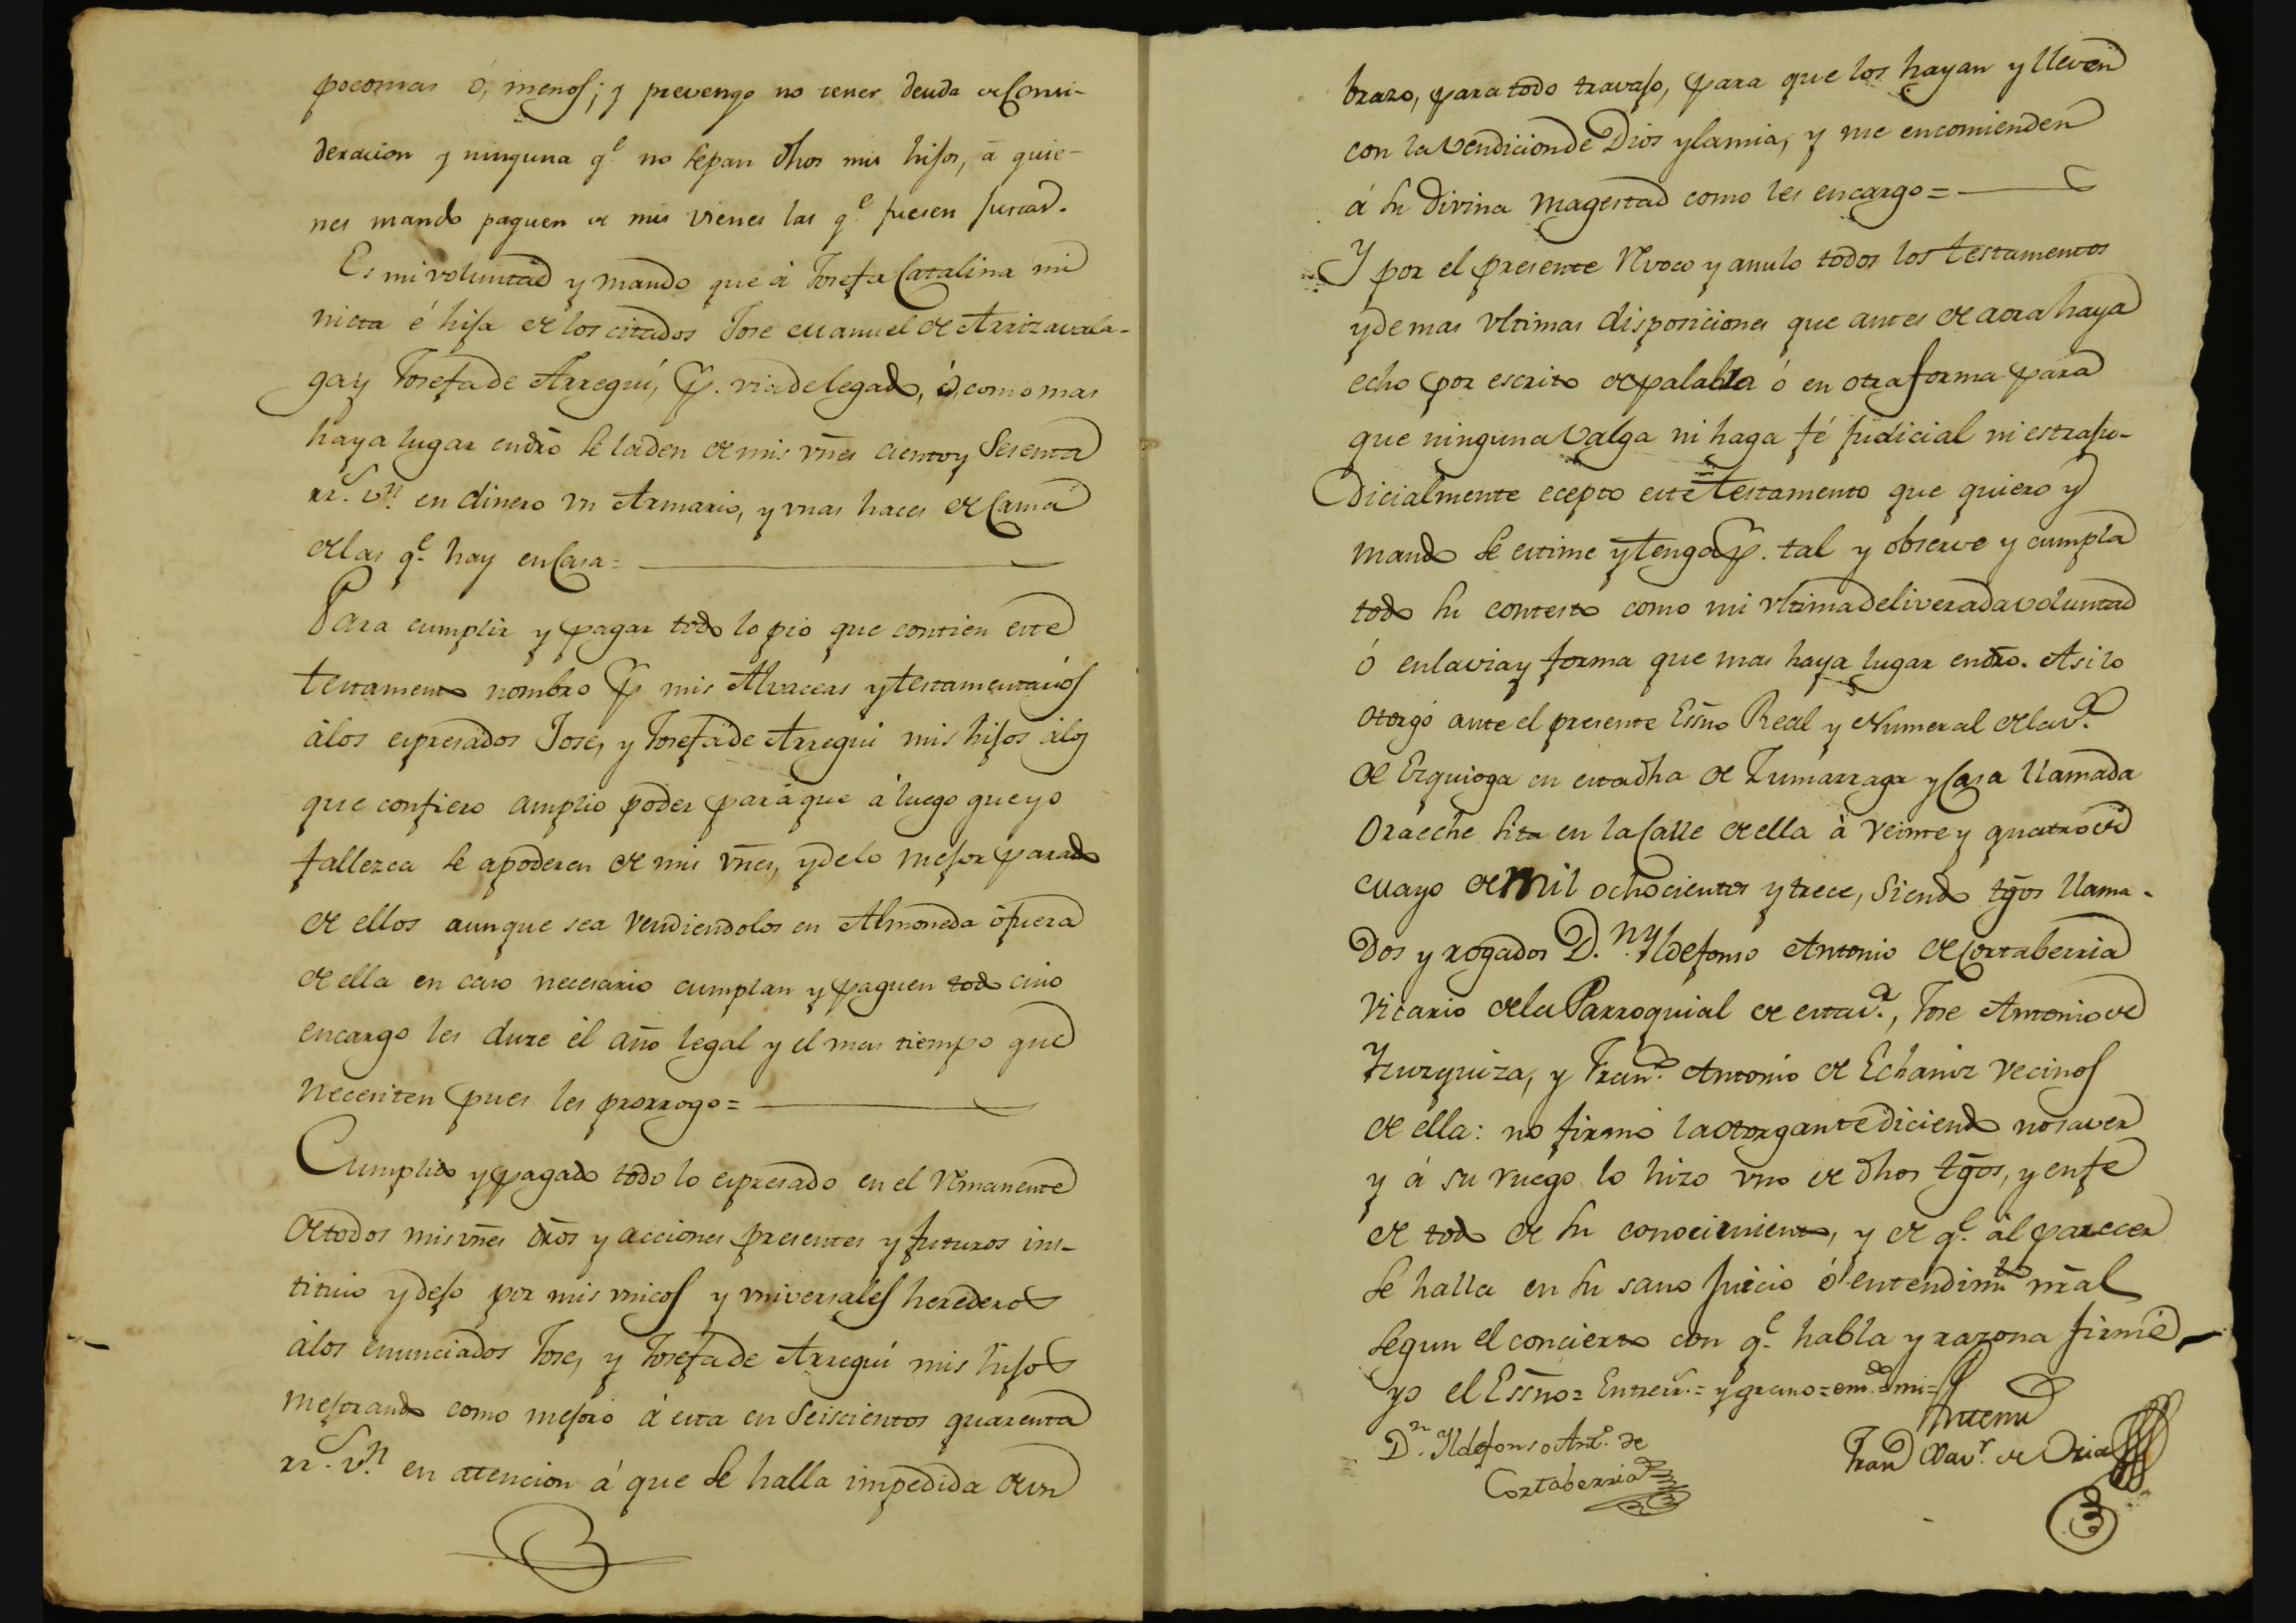 poco mas ó, menos; y prevengo no tener deuda de Consi-
deracion y ninguna q.e no sepan dhos mis hijos, á quie-
nes mando paguen de mis vienes las q.e fuesen justas.
Es mi voluntad y mando que á Josefa Catalina mi
nieta é hija de los citados Jose Manuel de Arrizavala-
ga y Josefa de Arregui, p. via de legado, ó, como mas
haya lugar en dro se la den de mis vnes ciento y sesenta
rr.s v.n en dinero vn Armario, y vnas haces de Cama
de las q.e hay en Casa =
Para cumplir y pagar todo lo pio que contien este
testamento nombro p.r mis Alvaceas y testamentarios
á los espresados Jose, y Josefa de Arregui mis hijos á los
que confiero amplio poder para que á luego que yo
fallezca se apoderen de mis vnes, y de lo mejor parado
de ellos aunque sea vendiendolos en Almoneda ó fuera
de ella en caso necesario cumplan y paguen todo cuio
encargo les dure el año legal y el mas tiempo que
necesiten pues les prorrogo =
Cumplido y pagado todo lo espresado en el Remanente
de todos mis vnes dros y acciones presentes y futuros ins-
tituio y dejo por mis vnicos y vniversales herederos
á los enunciados Jose, y Josefa de Arregui mis hijos
mejorando como mejoro á esta en Seiscientos quarenta
rr.s v.n en atencion á que se halla impedida de vn
brazo, para todo travajo, para que los hayan y lleven
con la vendicion de Dios y la mia, y me encomienden
á su Divina Magestad como les encargo =
Y por el presente Revoco y anulo todos los testamentos
y demas vltimas disposiciones que antes de aora haya
echo por escrito de palabra ó en otra forma para
que ninguna valga ni haga fé judicial ni estraju-
dicialmente ecepto este testamento que quiero y
mando se estime y tenga p. tal y observe y cumpla
todo su contesto como mi vltima deliverada voluntad
ó en la via y forma que mas haya lugar en dro. Asi lo
otorgó ante el presente Essno Real y Numeral de la v.a
de Ezquioga en esta dha de Zumarraga y Casa llamada
Oraeche sita en la Calle de ella á veinte y quatro de
Mayo de mil ochocientos y trece, siendo tgos llama-
dos y rogados D.n Yldefonso Antonio de Cortaberria
Vicario de la Parroquial de esta v.a, Jose Antonio de
Yzurquiza, y Fran.co Antonio de Echaniz vecinos
de ella: no firmó la otorgante diciendo no saver
y á su ruego lo hizo vno de dhos tgos, y en fe
de todo de su conocimiento, y de q.e al parecer
se halla en su sano juicio ó entendim.to nral
segun el concierto con q.e habla y razona firmé
yo el Essno = Entrerr.s = y grano = em.do = mi =
D.n Yldefonso Ant.o de
Cortaberria
Antemi
Fran Xav.r de Oria